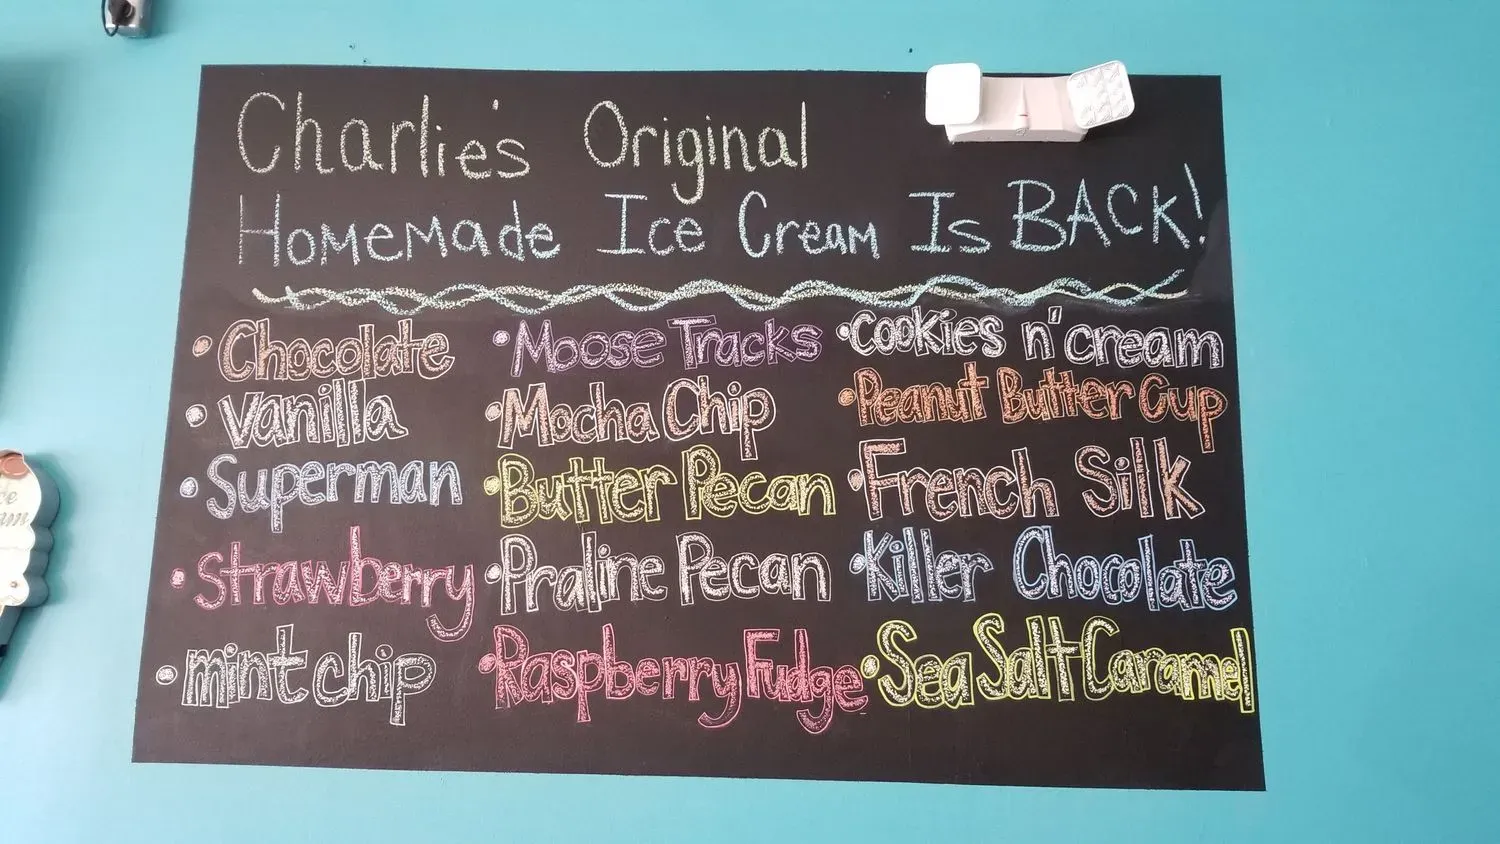 Charlie's Original
Homemade Ice Cream Is BACK!
• Chocolate
• Vanilla
• Superman
• Strawberry
• mint chip
• Moose Tracks
• Mocha Chip
• Butter Pecan
• Praline Pecan
• Raspberry Fudge
• Cookies n' cream
• Peanut Butter Cup
• French Silk
• Killer Chocolate
• Sea Salt Caramel